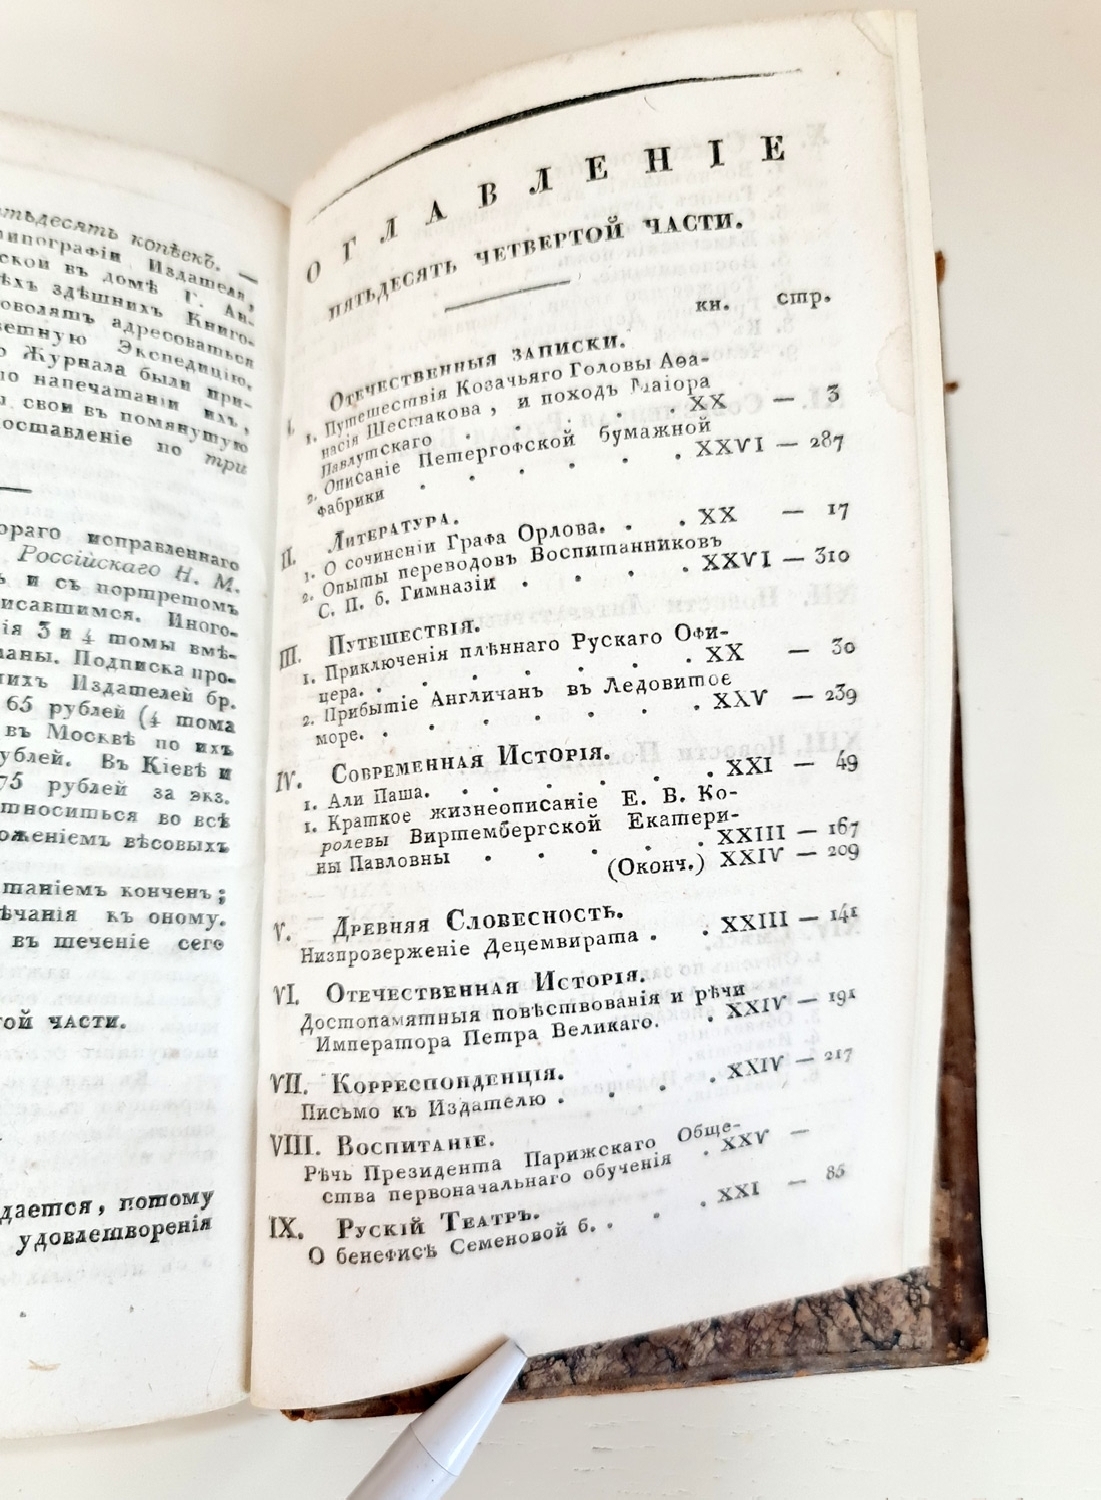 пятьдесять копѣекъ. —
типографіи Издателя,
ской въ домѣ Г. Ан-
ѣхъ здѣшнихъ Книго-
оволять адресоваться
етную Экспедицію.
о Журнала были при-
по напечатаніи ихъ,
ы свои въ помянутую
оставленіе по три
ораго исправленнаго
Россійскаго Н. М.
ь и съ портретомъ
исавшимся. Иного-
ія 3 и 4 томы вмѣ-
ланы. Подписка про-
нихъ Издателей бр.
65 рублей (4 тома
въ Москвѣ по ихъ
ублей. Въ Кіевѣ и
75 рублей за экз.
тноситься во всѣ
оженіемъ вѣсовыхъ
таніемъ кончень;
ѣчанія къ оному.
въ теченіе сего
той части.
дается, потому
удовлетворенія
ОГЛАВЛЕНІЕ
ПЯТЬДЕСЯТЬ ЧЕТВЕРТОЙ ЧАСТИ.
кн. стр.
I. Отечественныя записки.
1. Путешествія Козачьяго Головы Аѳа-
насія Шестакова, и походъ Маіора
Павлутскаго . . . . XX — 3
2. Описаніе Петергофской бумажной
фабрики . . . . . XXVI — 287
II. Литература.
1. О сочиненіи Графа Орлова. . . XX — 17
2. Опыты переводовъ Воспитанниковъ
С. П. б. Гимназіи . . . . XXVI — 310
III. Путешествія.
1. Приключенія плѣннаго Рускаго Офи-
цера. . . . . . . XX — 30
2. Прибытіе Англичанъ въ Ледовитое
море. . . . . . . XXV — 239
IV. Современная Исторія.
1. Али Паша. . . . . . XXI — 49
1. Краткое жизнеописаніе Е. В. Ко-
ролевы Виртембергской Екатери-
ны Павловны . . . . XXIII — 167
(Оконч.) XXIV — 209
V. Древняя Словесность.
Низпроверженіе Децемвирата . . XXIII — 141
VI. Отечественная Исторія.
Достопамятныя повѣствованія и рѣчи
Императора Петра Великаго. . XXIV — 191
VII. Корреспонденція.
Письмо къ Издателю . . . . XXIV — 217
VIII. Воспитаніе.
Рѣчь Президента Парижскаго Обще-
ства первоначальнаго обученія . XXV —
IX. Рускій Театръ.
О бенефисѣ Семеновой б. . . . XXI — 85